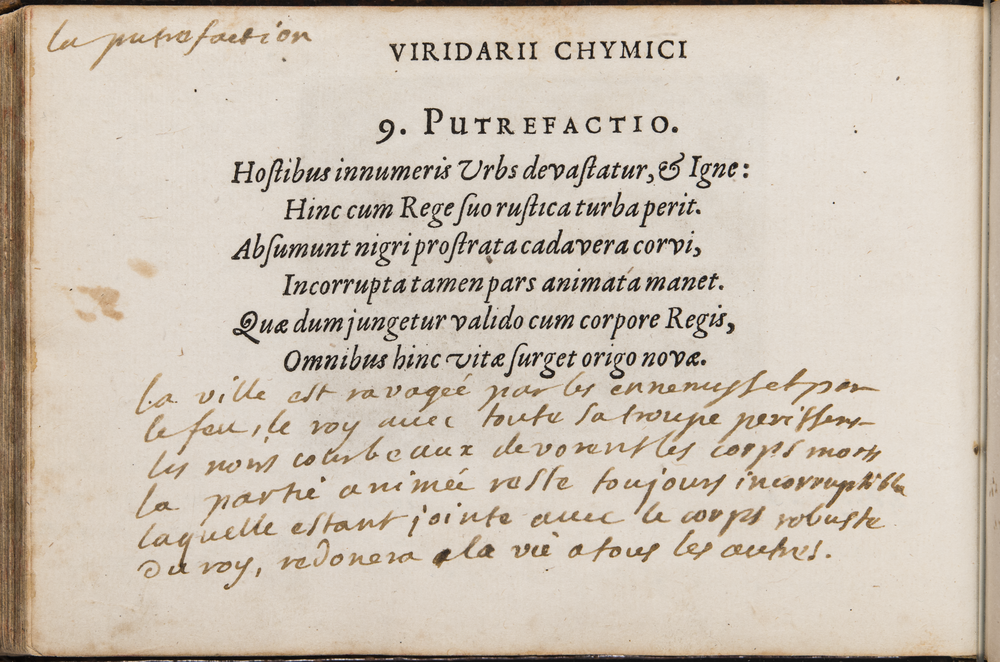 la putrefaction
VIRIDARII CHYMICI
9. PUTREFACTIO.
Hoſtibus innumeris Urbs devaſtatur, & Igne:
Hinc cum Rege ſuo ruſtica turba perit.
Abſumunt nigri proſtrata cadavera corvi,
Incorrupta tamen pars animata manet.
Quæ dum jungetur valido cum corpore Regis,
Omnibus hinc vitæ ſurget origo novæ.
la ville est ravageé par les ennemys et par
le feu, le roy avec toute sa troupe perissens
les noirs courbeaux devorent les corps morts
la partie animée reste toujours incorruptible
laquelle estant jointe avec le corps robuste
du roy, redonera la vie a tous les autres.